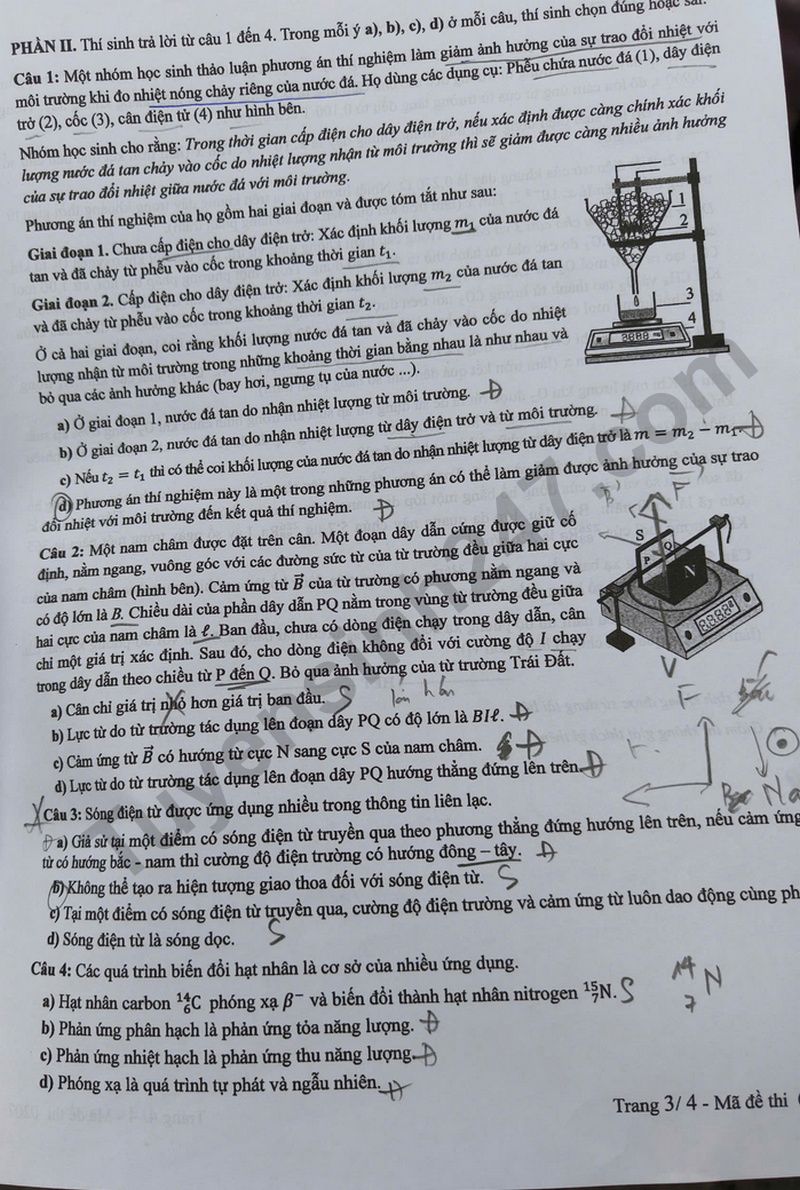 PHẦN II. Thí sinh trả lời từ câu 1 đến 4. Trong mỗi ý a), b), c), d) ở mỗi câu, thí sinh chọn đúng hoặc sai.
Câu 1: Một nhóm học sinh thảo luận phương án thí nghiệm làm giảm ảnh hưởng của sự trao đổi nhiệt với
môi trường khi đo nhiệt nóng chảy riêng của nước đá. Họ dùng các dụng cụ: Phễu chứa nước đá (1), dây điện
trở (2), cốc (3), cân điện tử (4) như hình bên.
Nhóm học sinh cho rằng: Trong thời gian cấp điện cho dây điện trở, nếu xác định được càng chính xác khối
lượng nước đá tan chảy vào cốc do nhiệt lượng nhận từ môi trường thì sẽ giảm được càng nhiều ảnh hưởng
của sự trao đổi nhiệt giữa nước đá với môi trường.
Phương án thí nghiệm của họ gồm hai giai đoạn và được tóm tắt như sau:
Giai đoạn 1. Chưa cấp điện cho dây điện trở: Xác định khối lượng m₁ của nước đá
tan và đã chảy từ phễu vào cốc trong khoảng thời gian t₁.
Giai đoạn 2. Cấp điện cho dây điện trở: Xác định khối lượng m₂ của nước đá tan
và đã chảy từ phễu vào cốc trong khoảng thời gian t₂.
Ở cả hai giai đoạn, coi rằng khối lượng nước đá tan và đã chảy vào cốc do nhiệt
lượng nhận từ môi trường trong những khoảng thời gian bằng nhau là như nhau và
bỏ qua các ảnh hưởng khác (bay hơi, ngưng tụ của nước ...).
1
2
3
4
a) Ở giai đoạn 1, nước đá tan do nhận nhiệt lượng từ môi trường. Đ
b) Ở giai đoạn 2, nước đá tan do nhận nhiệt lượng từ dây điện trở và từ môi trường. Đ
c) Nếu t₂ = t₁ thì có thể coi khối lượng của nước đá tan do nhận nhiệt lượng từ dây điện trở là m = m₂ − m₁. Đ
d) Phương án thí nghiệm này là một trong những phương án có thể làm giảm được ảnh hưởng của sự trao
đổi nhiệt với môi trường đến kết quả thí nghiệm. Đ
Câu 2: Một nam châm được đặt trên cân. Một đoạn dây dẫn cứng được giữ cố
định, nằm ngang, vuông góc với các đường sức từ của từ trường đều giữa hai cực
của nam châm (hình bên). Cảm ứng từ B⃗ của từ trường có phương nằm ngang và
có độ lớn là B. Chiều dài của phần dây dẫn PQ nằm trong vùng từ trường đều giữa
hai cực của nam châm là ℓ. Ban đầu, chưa có dòng điện chạy trong dây dẫn, cân
chỉ một giá trị xác định. Sau đó, cho dòng điện không đổi với cường độ I chạy
trong dây dẫn theo chiều từ P đến Q. Bỏ qua ảnh hưởng của từ trường Trái Đất.
B F
S
P Q
N
V
a) Cân chỉ giá trị nhỏ hơn giá trị ban đầu. S lớn hơn
b) Lực từ do từ trường tác dụng lên đoạn dây PQ có độ lớn là BIℓ. Đ
c) Cảm ứng từ B⃗ có hướng từ cực N sang cực S của nam châm. Đ
d) Lực từ do từ trường tác dụng lên đoạn dây PQ hướng thẳng đứng lên trên. Đ
F
Câu 3: Sóng điện từ được ứng dụng nhiều trong thông tin liên lạc.
Đ a) Giả sử tại một điểm có sóng điện từ truyền qua theo phương thẳng đứng hướng lên trên, nếu cảm ứng
từ có hướng bắc - nam thì cường độ điện trường có hướng đông – tây. Đ
b) Không thể tạo ra hiện tượng giao thoa đối với sóng điện từ. S
c) Tại một điểm có sóng điện từ truyền qua, cường độ điện trường và cảm ứng từ luôn dao động cùng ph
d) Sóng điện từ là sóng dọc. S
Câu 4: Các quá trình biến đổi hạt nhân là cơ sở của nhiều ứng dụng.
a) Hạt nhân carbon ¹⁴₆C phóng xạ β⁻ và biến đổi thành hạt nhân nitrogen ¹⁵₇N. S ¹⁴₇N
b) Phản ứng phân hạch là phản ứng tỏa năng lượng. Đ
c) Phản ứng nhiệt hạch là phản ứng thu năng lượng. Đ
d) Phóng xạ là quá trình tự phát và ngẫu nhiên. Đ
Trang 3/ 4 - Mã đề thi
Tuyensinh247.com